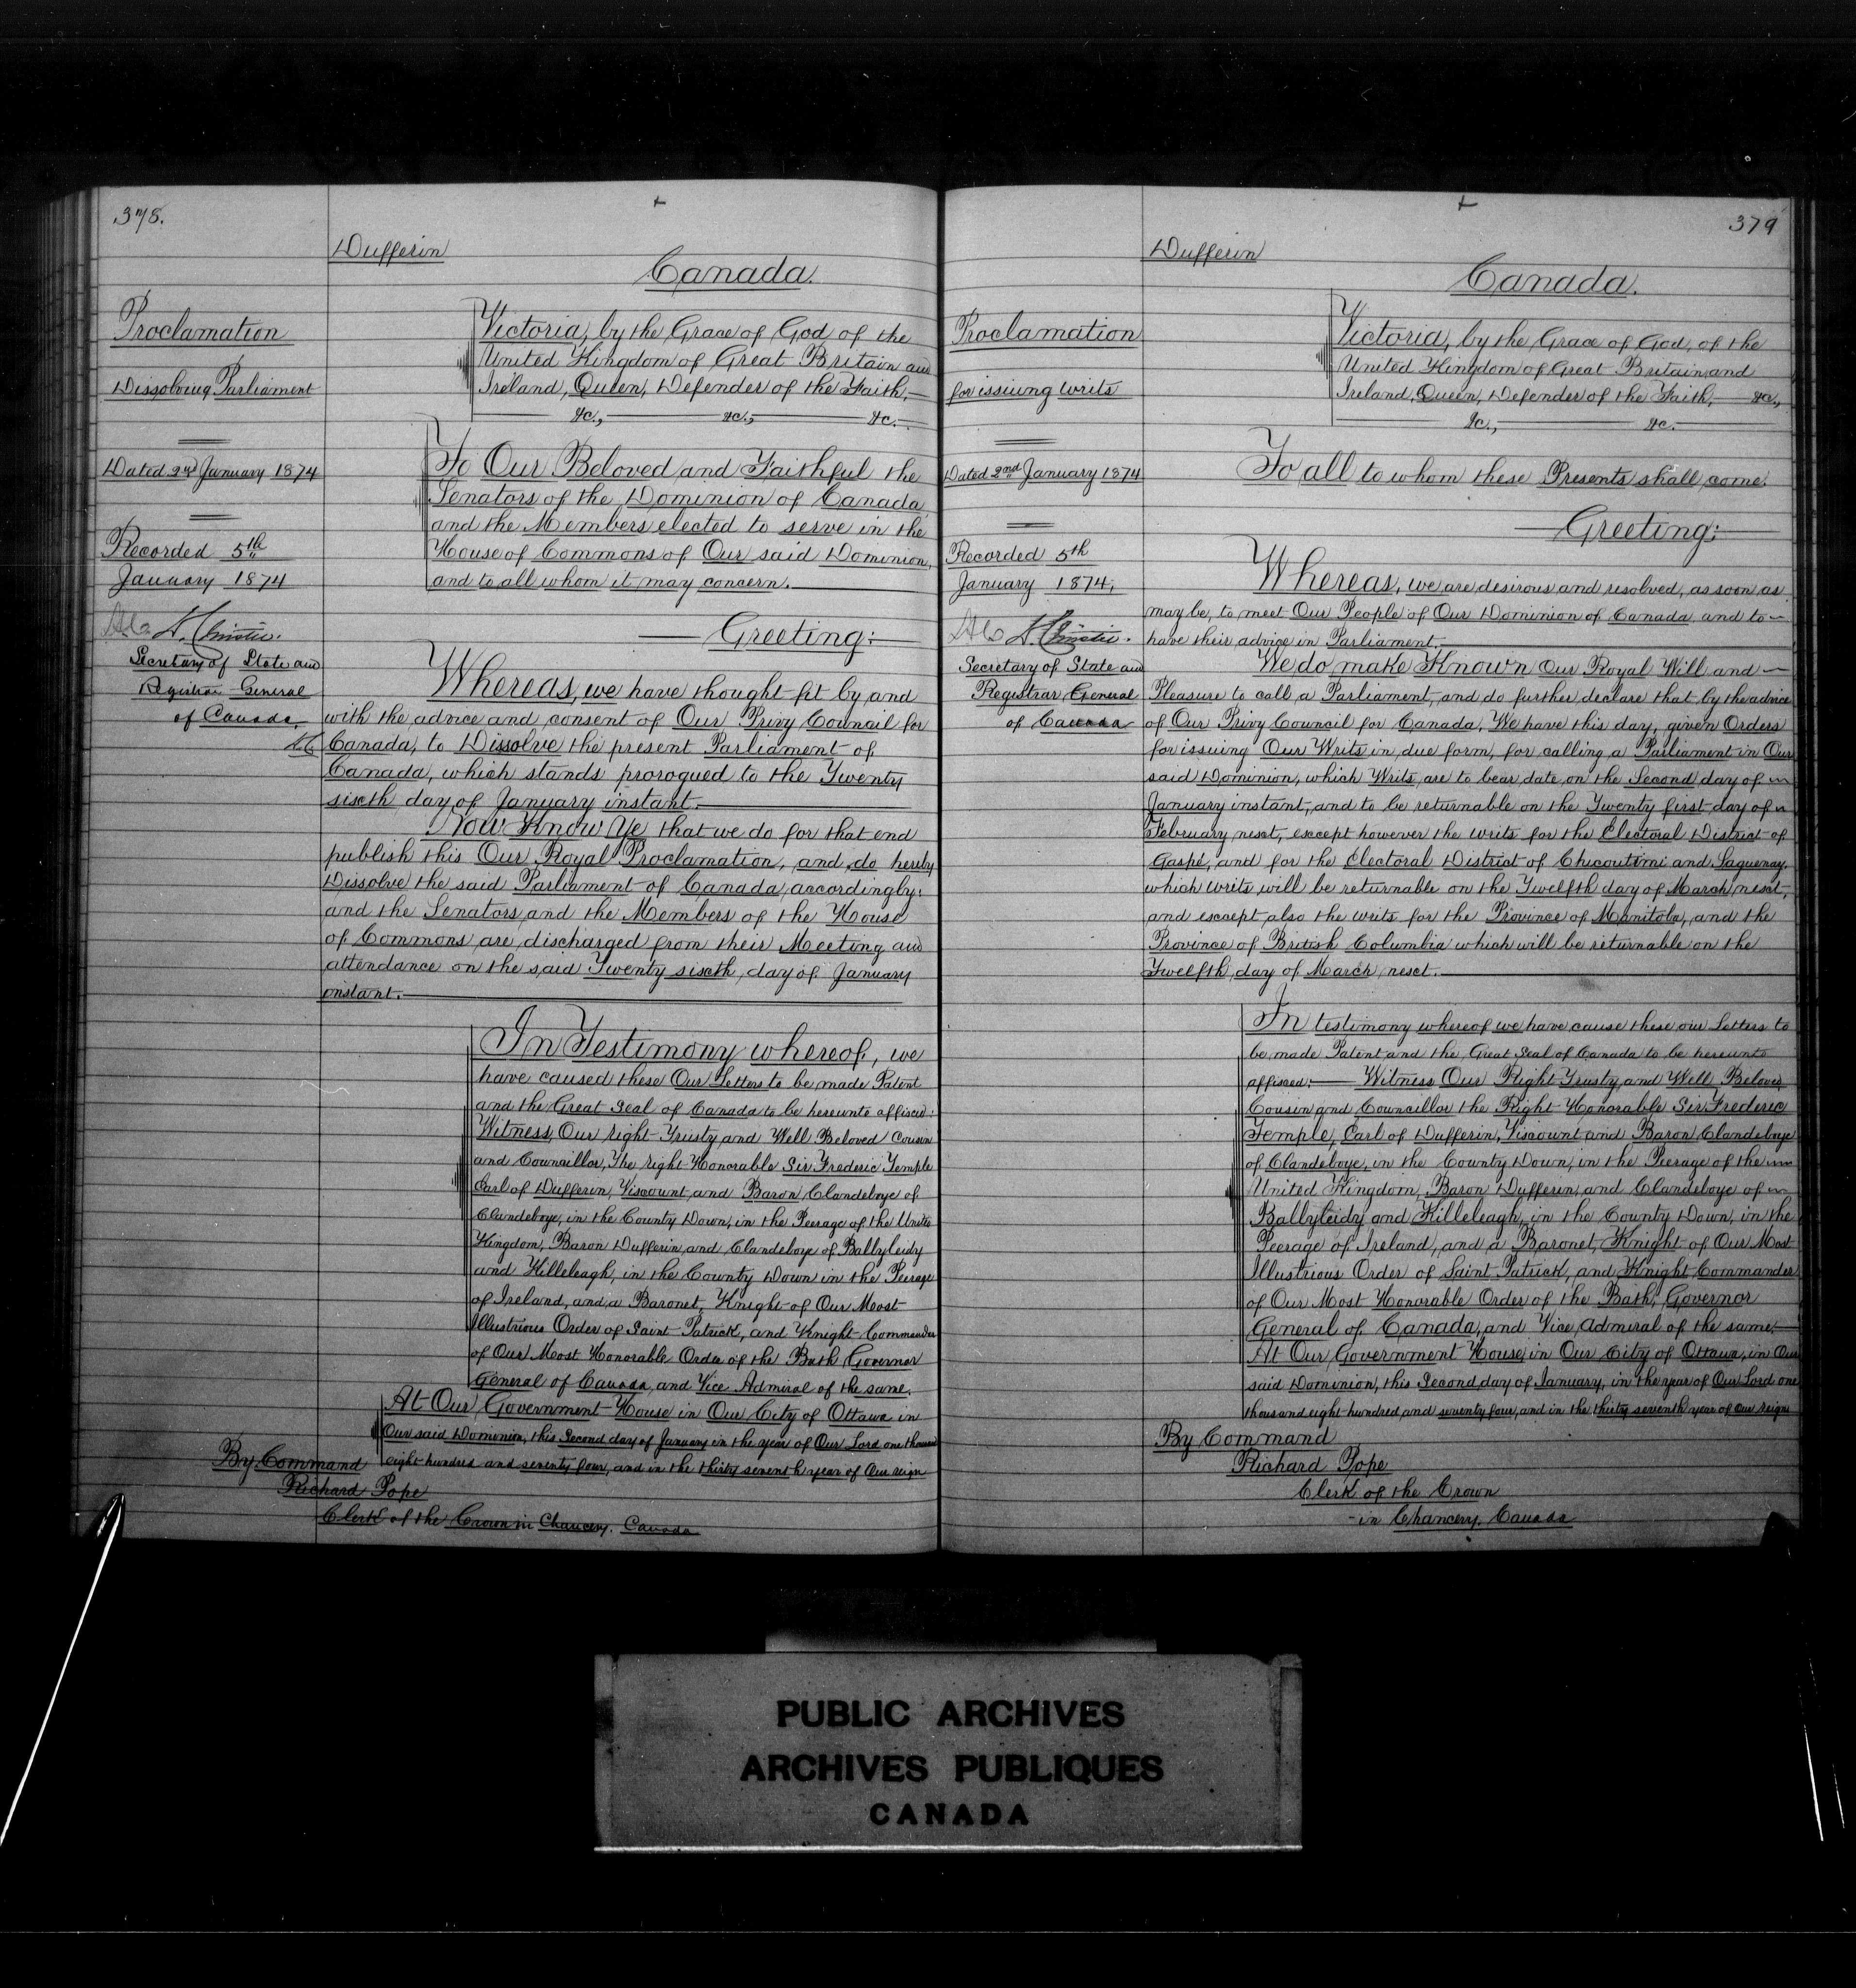 378.
Dufferin
Canada.
Proclamation
Dissolving Parliament
Dated 2nd January 1874
Recorded 5th
January 1874
D. Christie.
Secretary of State and
Registrar General
of Canada
Victoria, by the Grace of God of the
United Kingdom of Great Britain and
Ireland, Queen, Defender of the Faith,
&c., &c., &c.
To Our Beloved and Faithful the
Senators of the Dominion of Canada,
and the Members elected to serve in the
House of Commons of Our said Dominion,
and to all whom it may concern.
Greeting:
Whereas, we have thought fit by and
with the advice and consent of Our Privy Council for
Canada, to Dissolve the present Parliament of
Canada, which stands prorogued to the Twenty
sixth day of January instant.
Now Know Ye that we do for that end
publish this Our Royal Proclamation, and do hereby
Dissolve the said Parliament of Canada, accordingly:
and the Senators and the Members of the House
of Commons are discharged from their Meeting and
attendance on the said Twenty sixth day of January
instant.
In Testimony whereof, we
have caused these Our Letters to be made Patent
and the Great Seal of Canada to be hereunto affixed:
Witness, Our right Trusty and Well Beloved Cousin
and Councillor, The right Honorable Sir Frederic Temple
Earl of Dufferin, Viscount and Baron Clandeboye of
Clandeboye, in the County Down, in the Peerage of the United
Kingdom, Baron Dufferin and Clandeboye of Ballyleidy
and Killeleagh, in the County Down in the Peerage
of Ireland, and a Baronet, Knight of Our Most
Illustrious Order of Saint Patrick, and Knight Commander
of Our Most Honorable Order of the Bath, Governor
General of Canada, and Vice Admiral of the same.
At Our Government House in Our City of Ottawa in
Our said Dominion, this Second day of January in the year of Our Lord one thousand
eight hundred and seventy four, and in the thirty seventh year of Our reign
By Command
Richard Pope
Clerk of the Crown in Chancery. Canada
379
Dufferin
Canada.
Proclamation
for issuing writs
Dated 2nd January 1874
Recorded 5th
January 1874,
D. Christie.
Secretary of State and
Registrar General
of Canada
Victoria, by the Grace of God, of the
United Kingdom of Great Britain and
Ireland, Queen, Defender of the Faith, &c.,
&c., &c.
To all to whom these Presents shall come.
Greeting:
Whereas, we are desirous and resolved, as soon as
may be, to meet Our People of Our Dominion of Canada, and to
have their advice in Parliament.
We do make Known Our Royal Will and
Pleasure to call a Parliament, and do further declare that by the advice
of Our Privy Council for Canada, We have this day, given Orders
for issuing Our Writs in due form, for calling a Parliament in Our
said Dominion, which Writs, are to bear date on the Second day of
January instant, and to be returnable on the Twenty first day of
February next, except however the writs for the Electoral District of
Gaspé, and for the Electoral District of Chicoutimi and Saguenay,
which writs will be returnable on the Twelfth day of March next,
and except also the writs for the Province of Manitoba, and the
Province of British Columbia which will be returnable on the
Twelfth, day of March next.
In testimony whereof we have cause these our Letters to
be made Patent and the Great Seal of Canada to be hereunto
affixed: Witness Our Right Trusty and Well Beloved
Cousin and Councillor the Right Honorable Sir Frederic
Temple, Earl of Dufferin, Viscount and Baron Clandeboye
of Clandeboye, in the County Down, in the Peerage of the
United Kingdom, Baron Dufferin, and Clandeboye of
Ballyleidy and Killeleagh, in the County Down, in the
Peerage of Ireland, and a Baronet, Knight of Our Most
Illustrious Order of Saint Patrick, and Knight Commander
of Our Most Honorable Order of the Bath, Governor
General of Canada, and Vice Admiral of the same.
At Our Government House, in Our City of Ottawa, in Our
said Dominion, this Second day of January, in the year of Our Lord one
thousand eight hundred and seventy four, and in the thirty seventh year of our reign
By Command
Richard Pope
Clerk of the Crown
in Chancery. Canada
PUBLIC ARCHIVES
ARCHIVES PUBLIQUES
CANADA